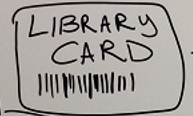 LIBRARY
CARD